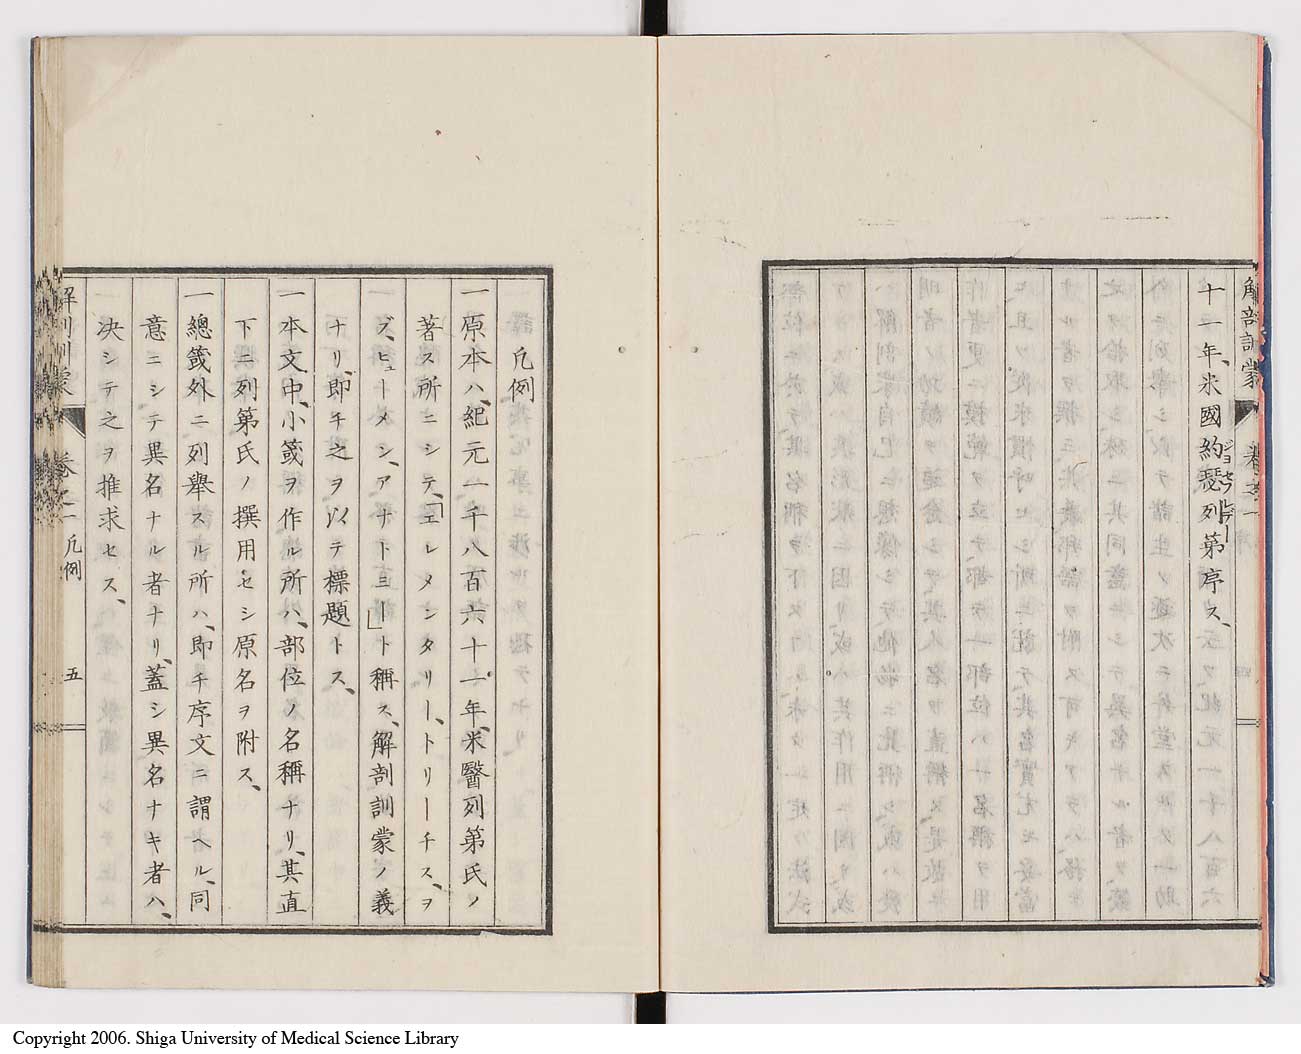 解剖訓蒙 卷之一
十一年、米國約瑟列第序ス、
ジョセフレデー
凡例
一原本ハ、紀元一千八百六十一年、米醫列第氏ノ
著ス所ニシテ、「エレメンタリー、トリーチス、ヲ
ブ、ヒューメン、アナトヨーート稱ス、解剖訓蒙ノ義
ナリ、即チ之ヲ以テ標題トス、
一本文中、小箴ヲ作ル所ハ、部位ノ名稱ナリ、其直
下ニ列第氏ノ撰用セシ原名ヲ附ス、
一總箴外ニ列舉スル所ハ、即チ序文ニ謂ヘル、同
意ニシテ異名ナル者ナリ、蓋シ異名ナキ者ハ、
決シテ之ヲ推求セス、
卷之一 凡例 五
Copyright 2006. Shiga University of Medical Science Library